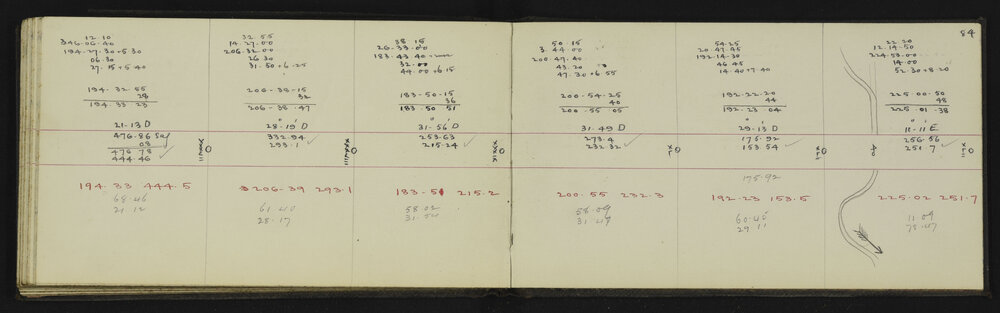 84
12.10
346.06.40
194.27.30 + 5 30
06.30
27.15 + 5.40
194.32.55
28
194.33.23
21.13 D
476.86 Sag
08
476 78
444.46
XXXVII
194.33 444.5
68.46
21.12
32.55
14.27.00
206.32.00
26.30
31.50 + 6.25
206-38-15
32
206-38.47
28-19 D
332.94
293.1
XXXVIII
206-39 293.1
61.40
28.17
38.15
26.39.00
183.43 40
32.00
44.00 + 6.15
183-50-15
36
183.50 51
31-56 D
253.63
215.24
XXXIX
183-51 215.2
58.02
31.54
50.15
3.44.00
200.47.40
43.20
47.30 + 6.55
200-54-25
40
200-55 05
31.49 D
273.4
232.32
XL
200.55 232.3
58.09
31.47
54.25
20 47.45
192.14.30
46 45
14.40 + 7.40
192-22-20
44
192-23 04
29-13 D
175.92
153 54
XLI
175.92
192-23 153.5
60.45
29 11
22.20
12.14.50
224.53.00
14.00
52.30 + 8.20
225-00-50
48
225.01.38
11-11 E
256.56
251 7
XLII
225.02 251.7
11 09